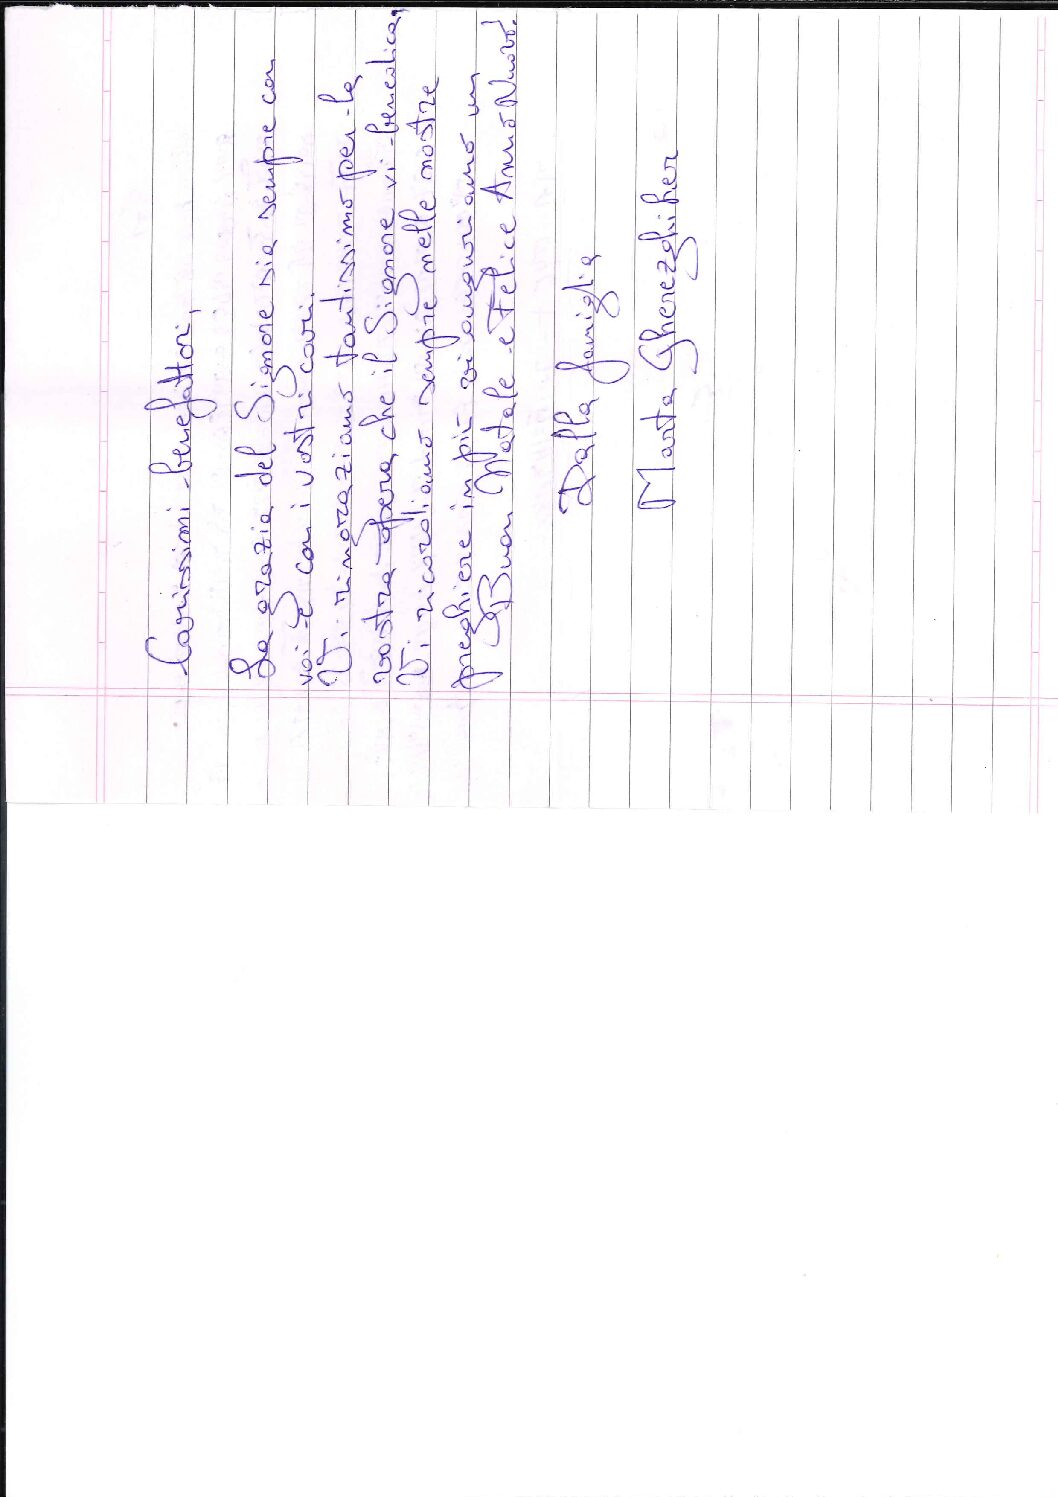 Carissimi benefattori,
La grazia del Signore sia sempre con
voi e con i vostri cari.
Vi ringraziamo tantissimo per la
vostra opera, che il Signore vi benedica,
Vi ricordiamo sempre nelle nostre
preghiere in più vi auguriamo un
Buon Natale e Felice Anno Nuovo!
Dalla famiglia
Marta Gherezghiher